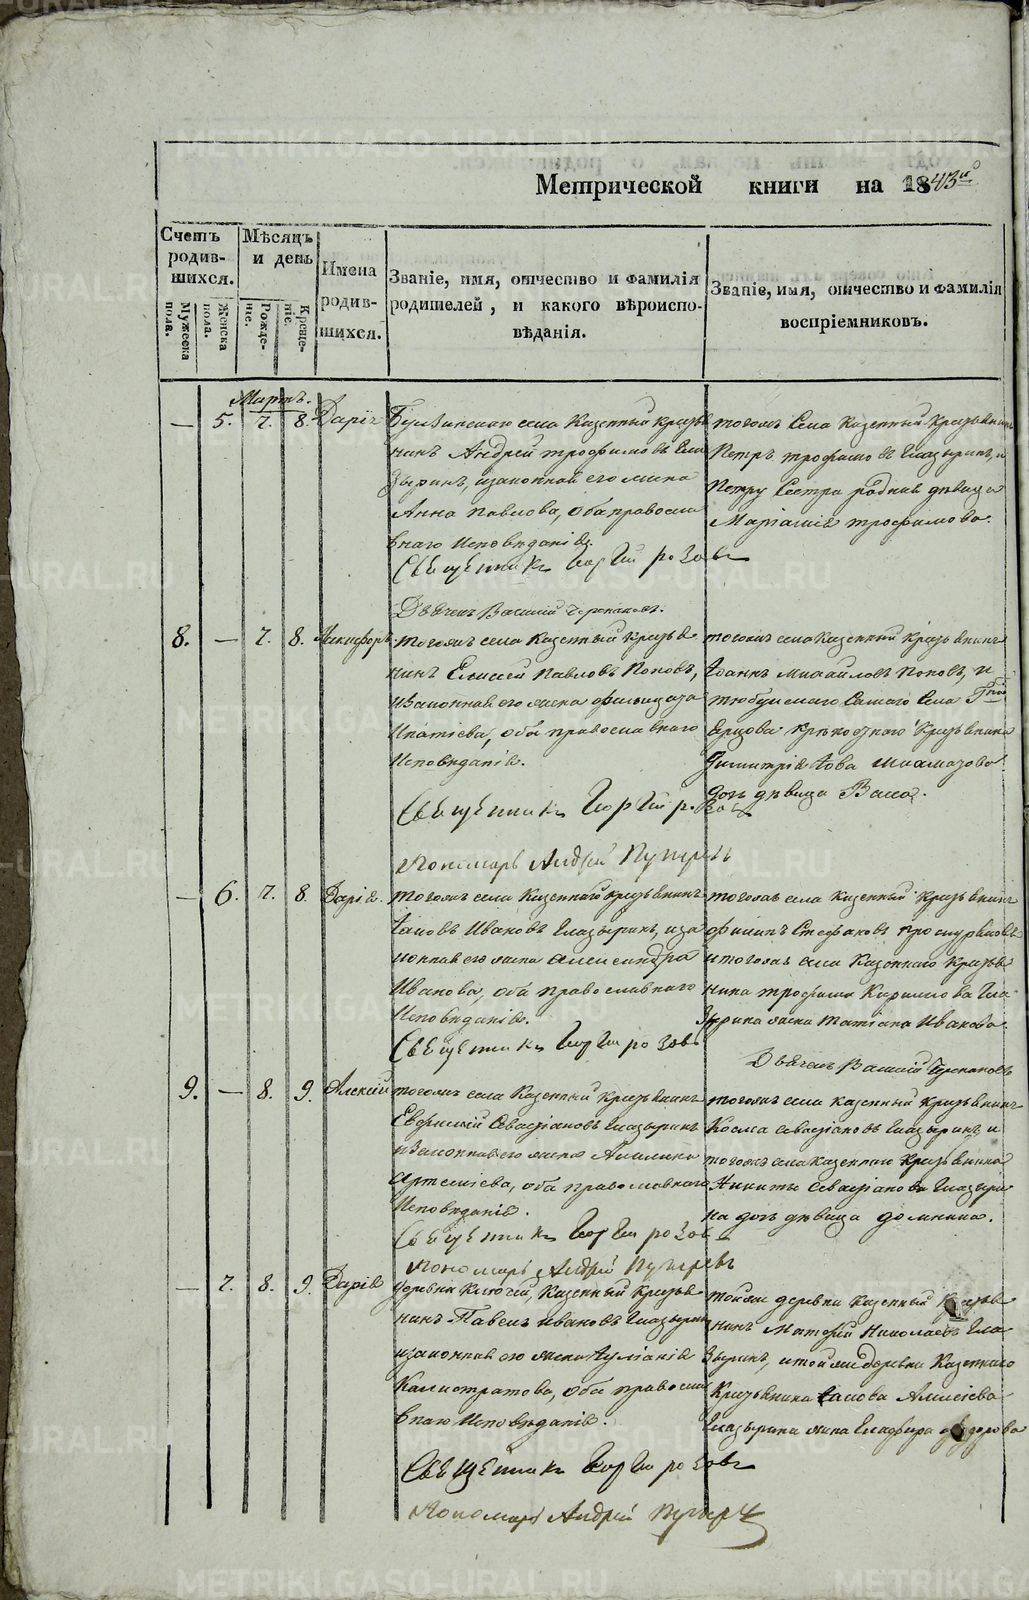 Метрической книги на 1843й
Счетъ родив-шихся.
Мужеска пола.
Женска пола.
Мѣсяцъ и день
Рожде-ніе.
Креще-ніе.
Имена родив-шихся.
Званіе, имя, отчество и фамилія
родителей, и какого вѣроиспо-
вѣданія.
Званіе, имя, отчество и фамилія
воспріемниковъ.
Мартъ.
— 5. 7. 8. Дарія
села Казенный Крестья
нинъ Андрей Трофимовъ Гла
зыринъ, изаконная его жена
Анна Павлова, оба правосла
внаго Исповѣданія.
Священникъ Георгій Розовъ
Дьячекъ Василій
тогожъ Села Казенный Крестьянинъ
Петръ Трофимовъ Глазыринъ, и
Петру Сестра родная дѣвица
Маріамія Трофимова.
8. — 7. 8. Никифоръ.
тогожъ села Казенный Крестья
нинъ Елисей Павловъ Поповъ,
изаконная его жена
Ипатіева, оба православнаго
Исповѣданія.
Священникъ Георгій Розовъ
Пономарь Андрей
тогожъ села Казенный Крестьянинъ
Іоаннъ Михайловъ Поповъ, и
Села Гпжи
Крестьянина
Димитрія Іова
дочь дѣвица Васса.
— 6. 7. 8. Дарія.
тогожъ села Казеннаго Крестьянинъ
Іаковъ Ивановъ Глазыринъ, иза
конная его жена Александра
Иванова, оба православнаго
Исповѣданія.
Священникъ Георгій Розовъ
тогожъ села Казенный Крестьянинъ
Филипъ Стефановъ
итогожъ села Казеннаго Крестья
нина Трофима Кирилова Гла
зырина жена Татіана Иванова
Дьячекъ Василій
9. — 8. 9. Алексій
тогожъ села Казенный Крестьянинъ
Евфимій Севастіановъ Глазыринъ
изаконная его жена Акилина
Артеміева, оба православнаго
Исповѣданія.
Священникъ Георгій Розовъ
Пономарь Андрей
тогожъ села казенный Крестьянинъ
Косма Севастіановъ Глазыринъ и
тогожъ села казеннаго Крестьянина
Никиты Севастіанова Глазыри
на дочь дѣвица Домника.
— 7. 8. 9. Дарія
деревни Ключей, Казенный Крестья
нинъ Павелъ Ивановъ Глазыринъ
изаконная его жена Іуліанія
Калистратова, оба правосла
внаго Исповѣданія.
Священникъ Георгій Розовъ
Пономарь Андрей
тойже деревни Казенный Крестья
нинъ Матфей Николаевъ Гла
зыринъ, итойже деревни Казеннаго
Крестьянина Іакова Алексіева
Глазырина жена Глафира Федорова
METRIKI.GASO-URAL.RU